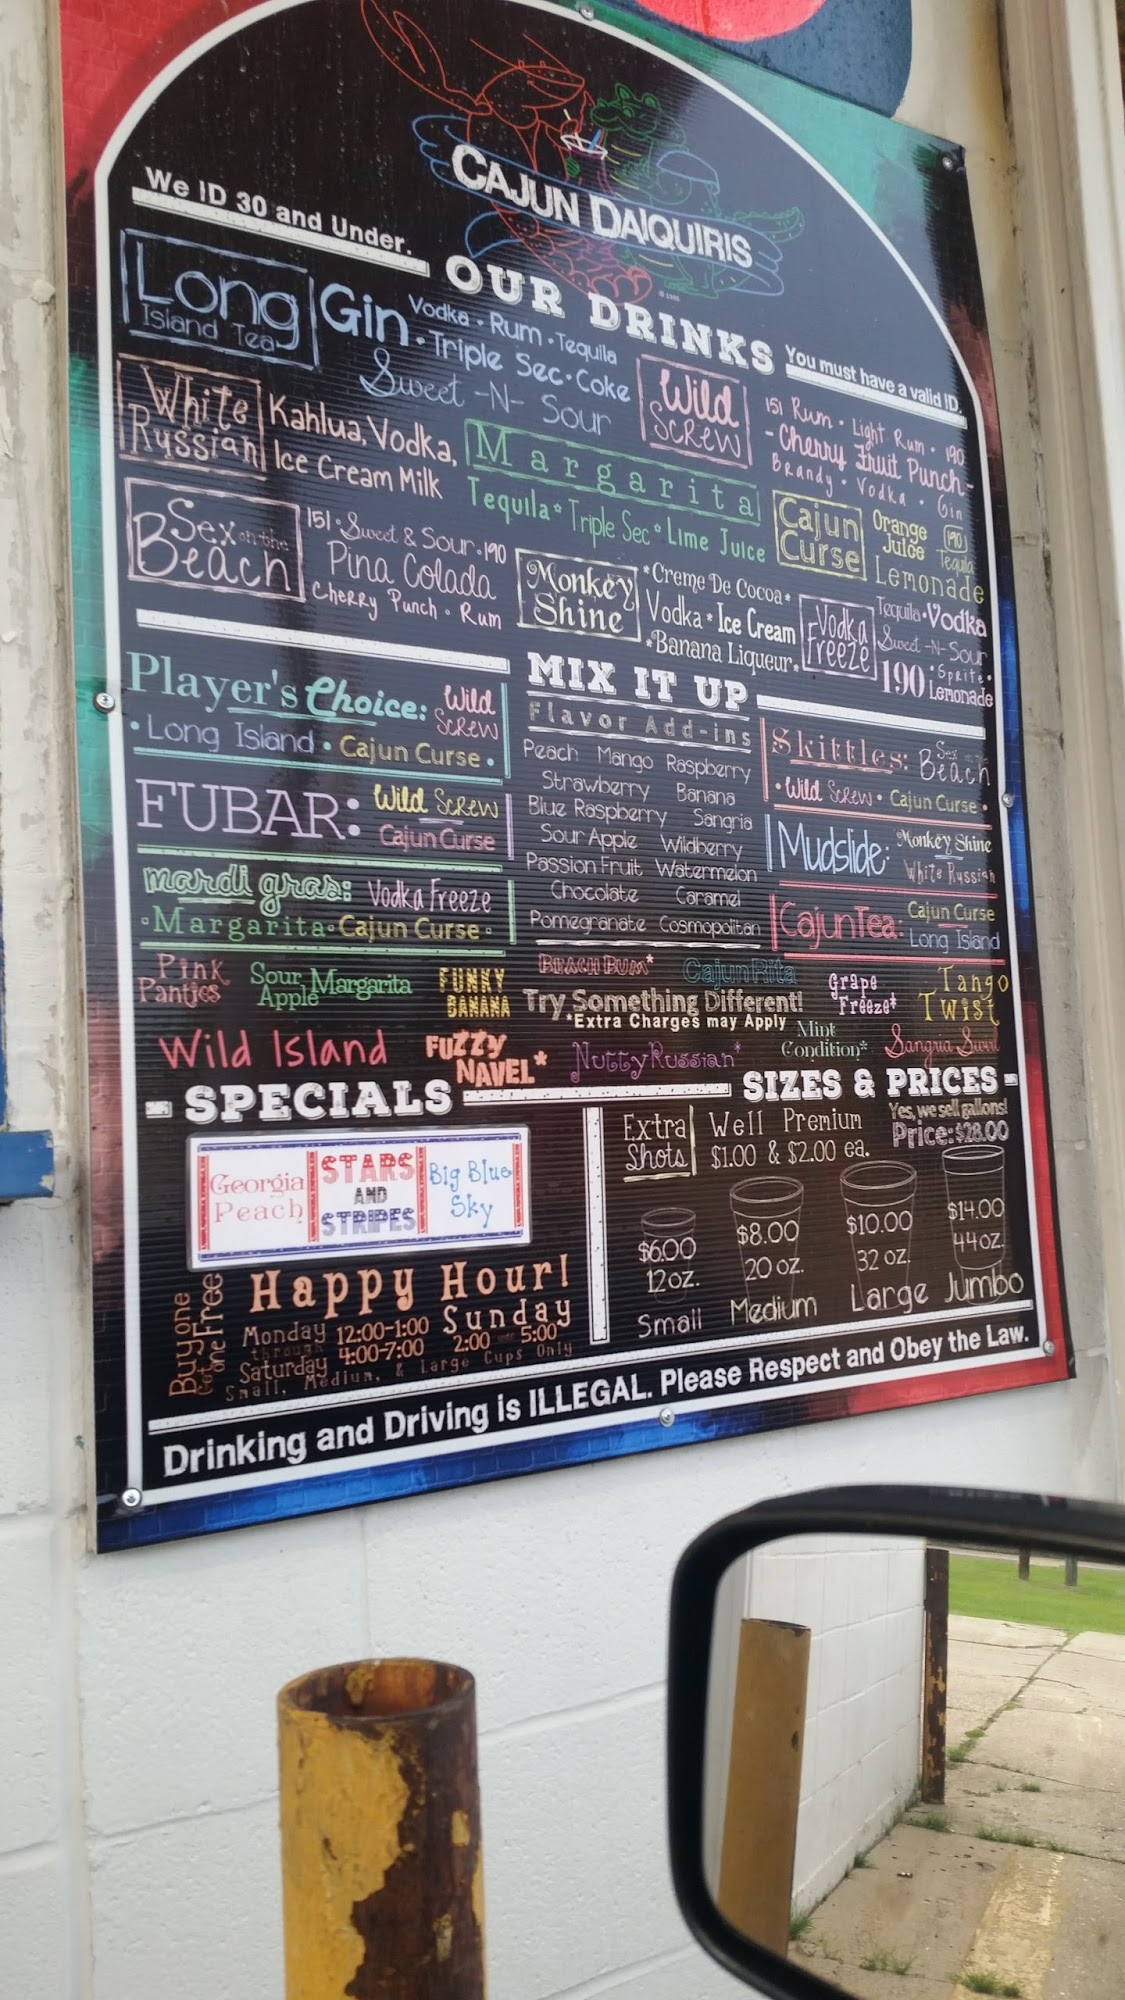 CAJUN DAIQUIRIS
© 1995
We ID 30 and Under.
OUR DRINKS
You must have a valid ID.
Long
Island Tea
Gin
Vodka • Rum • Tequila
• Triple Sec • Coke
Sweet -N- Sour
Wild
Screw
151 Rum • Light Rum • 190
- Cherry Fruit Punch -
Brandy • Vodka • Gin
White
Russian
Kahlua, Vodka,
Ice Cream Milk
Margarita
Tequila * Triple Sec * Lime Juice
Cajun
Curse
Orange
Juice
190
Tequila
Lemonade
Sex on the
Beach
151 • Sweet & Sour • 190
Pina Colada
Cherry Punch • Rum
Monkey
Shine
*Creme De Cocoa*
Vodka * Ice Cream
*Banana Liqueur*
Vodka
Freeze
Tequila • Vodka
Sweet -N- Sour
190 • Sprite •
Lemonade
MIX IT UP
Flavor Add-ins
Player's Choice: Wild
Screw
• Long Island • Cajun Curse •
FUBAR: Wild Screw
Cajun Curse
mardi gras: Vodka Freeze
• Margarita • Cajun Curse •
Peach Mango Raspberry
Strawberry Banana
Blue Raspberry Sangria
Sour Apple Wildberry
Passion Fruit Watermelon
Chocolate Caramel
Pomegranate Cosmopolitan
Skittles: Sex on the
Beach
• Wild Screw • Cajun Curse •
Mudslide: Monkey Shine
White Russian
Cajun Tea: Cajun Curse
Long Island
Pink
Panties
Sour
Apple Margarita
FUNKY
BANANA
BEACH BUM*
CajunRita
Grape
Freeze*
Tango
Twist
Try Something Different!
*Extra Charges may Apply
Wild Island
FUZZY
NAVEL*
Nutty Russian*
Mint
Condition*
Sangria Swirl
- SPECIALS
Georgia
Peach
STARS
AND
STRIPES
Big Blue
Sky
Buy one
Get one Free
Happy Hour!
Monday
through
Saturday
12:00-1:00
4:00-7:00
Sunday
2:00 - 5:00
Small, Medium, & Large Cups Only
SIZES & PRICES -
Extra
Shots
Well Premium
$1.00 & $2.00 ea.
Yes, we sell gallons!
Price: $28.00
$6.00
12 oz.
Small
$8.00
20 oz.
Medium
$10.00
32 oz.
Large
$14.00
44 oz.
Jumbo
Drinking and Driving is ILLEGAL. Please Respect and Obey the Law.